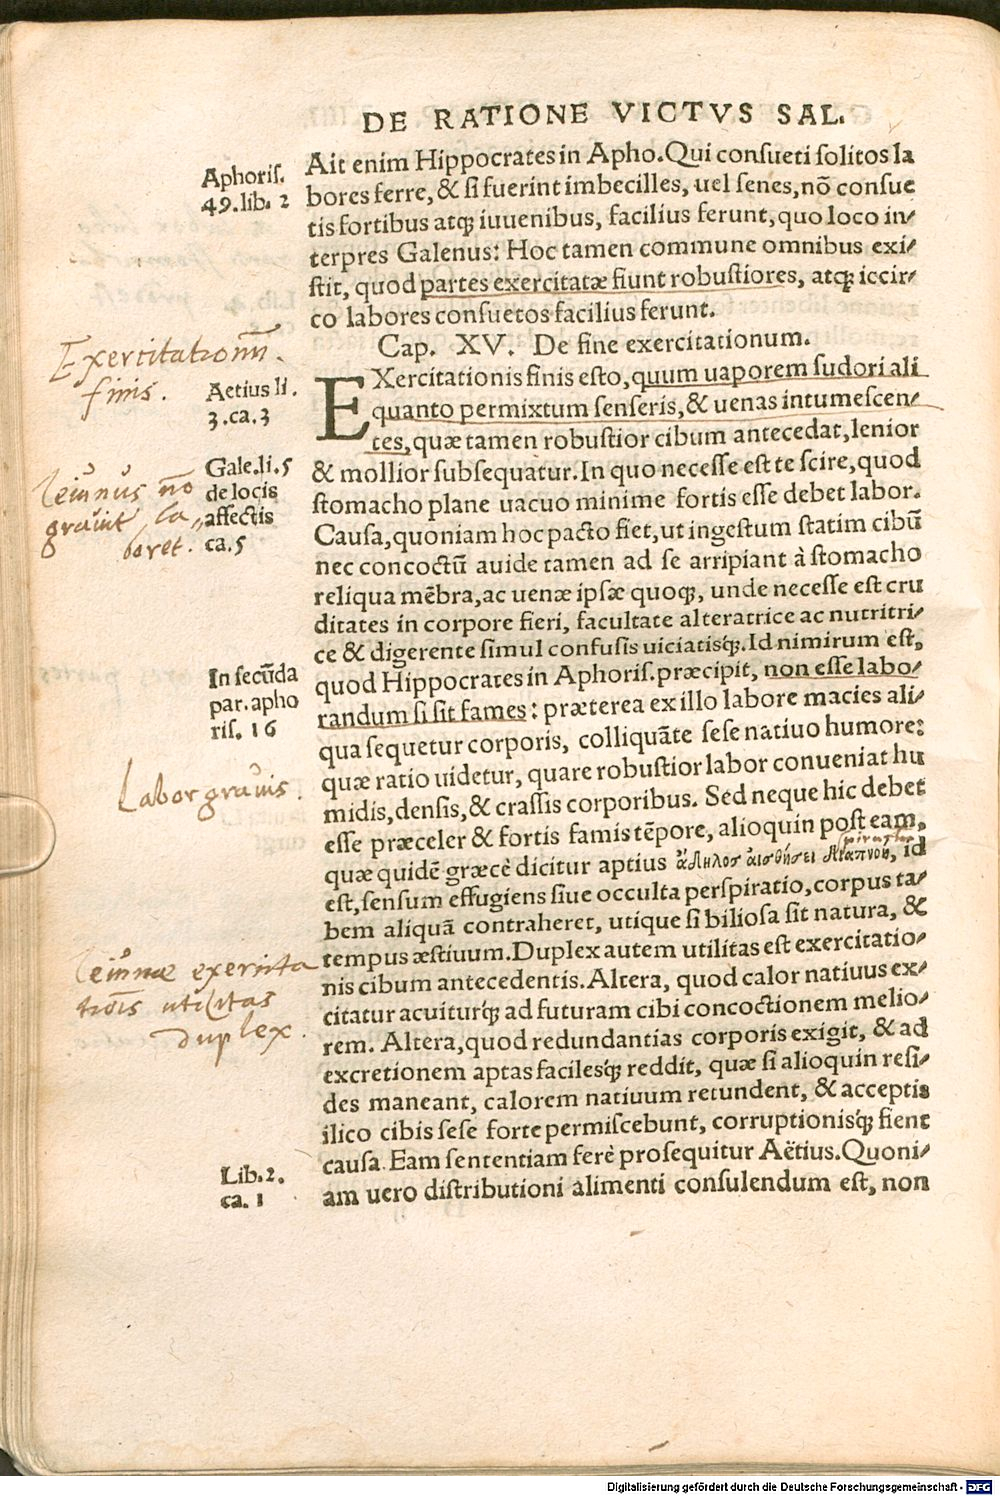 DE RATIONE VICTVS SAL.
Aphoris.
49.lib. 2
Ait enim Hippocrates in Apho.Qui consueti solitos la
bores ferre, & si fuerint imbecilles, uel senes, nō consue
tis fortibus atq; iuuenibus, facilius ferunt, quo loco in-
terpres Galenus: Hoc tamen commune omnibus exi-
stit, quod partes exercitatæ fiunt robustiores, atq; iccir-
co labores consuetos facilius ferunt.
Cap. XV. De fine exercitationum.
Exercitationū
finis.
Aetius li.
3.ca.3
EXercitationis finis esto, quum uaporem sudori ali
quanto permixtum senseris, & uenas intumescen-
tes, quæ tamen robustior cibum antecedat, lenior
Gale.li.5
de locis
affectis
ca.5
Ieiunus nō
grauit la-
boret.
& mollior subsequatur. In quo necesse est te scire, quod
stomacho plane uacuo minime fortis esse debet labor.
Causa, quoniam hoc pacto fiet, ut ingestum statim cibū
nec concoctū auide tamen ad se arripiant à stomacho
reliqua mēbra, ac uenæ ipsæ quoq;, unde necesse est cru
ditates in corpore fieri, facultate alteratrice ac nutritri-
ce & digerente simul confusis uiciatisq́;. Id nimirum est,
In secūda
par. apho
ris. 16
quod Hippocrates in Aphoris. præcipit, non esse labo-
randum si sit fames: præterea ex illo labore macies ali-
qua sequetur corporis, colliquāte sese natiuo humore:
Labor grauis.
quæ ratio uidetur, quare robustior labor conueniat hu
midis, densis, & crassis corporibus. Sed neque hic debet
esse præceler & fortis famis tēpore, alioquin post eam,
quæ quidē græcè dicitur aptius ἄδηλος αἰσθήσει διαπνοὴ, id
est, sensum effugiens siue occulta perspiratio, corpus ta-
bem aliquā contraheret, utique si biliosa sit natura, &
tempus æstiuum. Duplex autem utilitas est exercitatio-
Ieiunæ exercita
tiōis utilitas
duplex.
nis cibum antecedentis. Altera, quod calor natiuus ex-
citatur acuiturq́; ad futuram cibi concoctionem melio-
rem. Altera, quod redundantias corporis exigit, & ad
excretionem aptas facilesq́; reddit, quæ si alioquin resi-
des maneant, calorem natiuum retundent, & acceptis
ilico cibis sese forte permiscebunt, corruptionisq́; fient
causa. Eam sententiam ferè prosequitur Aëtius. Quoni-
Lib.2.
ca. 1
am uero distributioni alimenti consulendum est, non
Digitalisierung gefördert durch die Deutsche Forschungsgemeinschaft - DFG